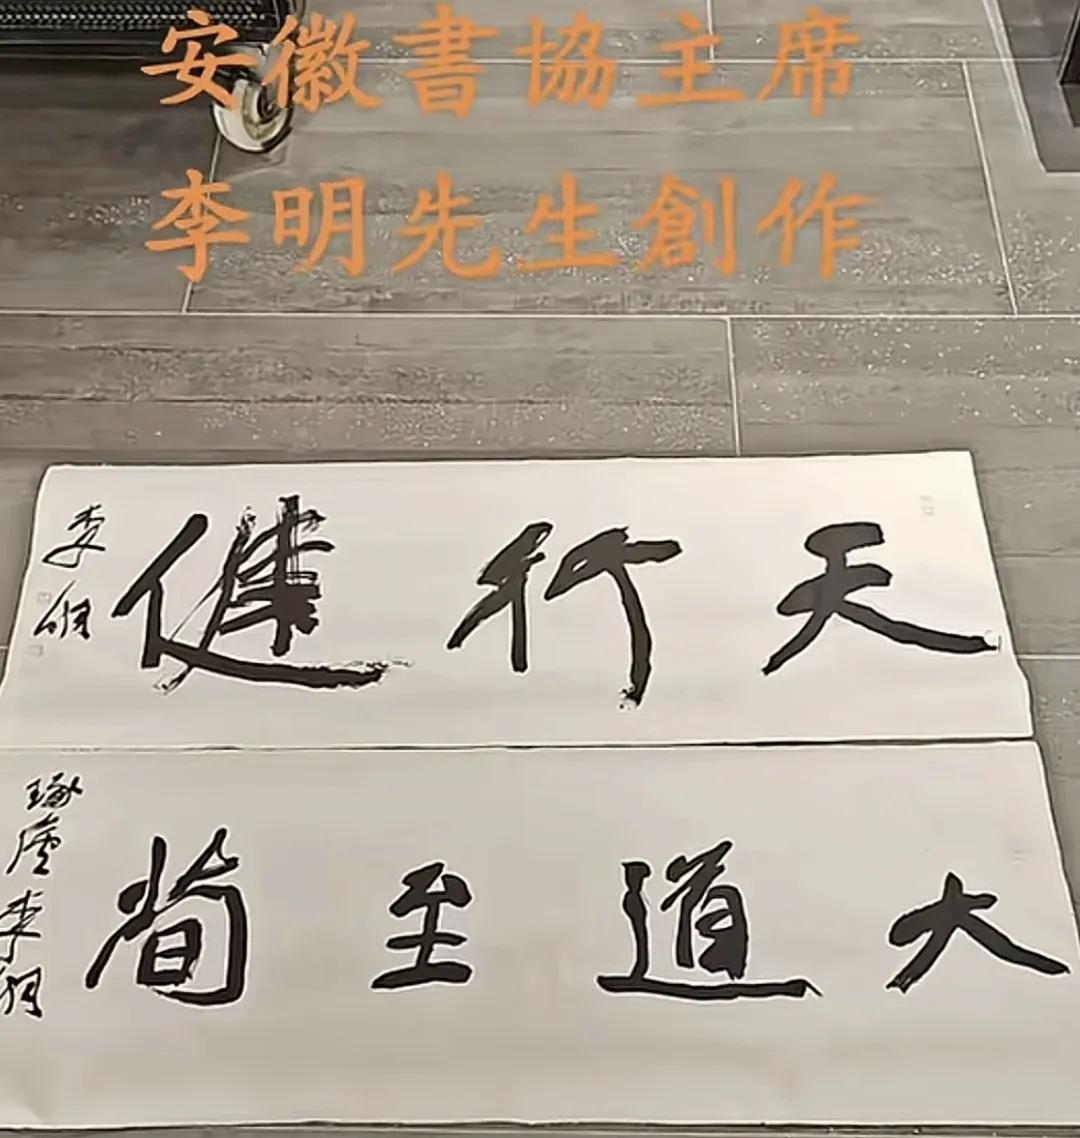 安徽書協主席
李明先生創作
天行健
李明
大道至简
琢廬李明